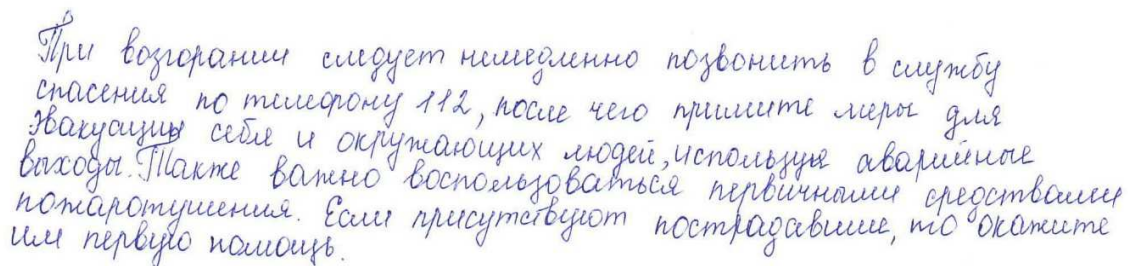 При возгорании следует немедленно позвонить в службу
спасения по телефону 112, после чего примите меры для
эвакуации себя и окружающих людей, используя аварийные
выходы. Также важно воспользоваться первичными средствами
пожаротушения. Если присутствуют пострадавшие, то окажите
им первую помощь.